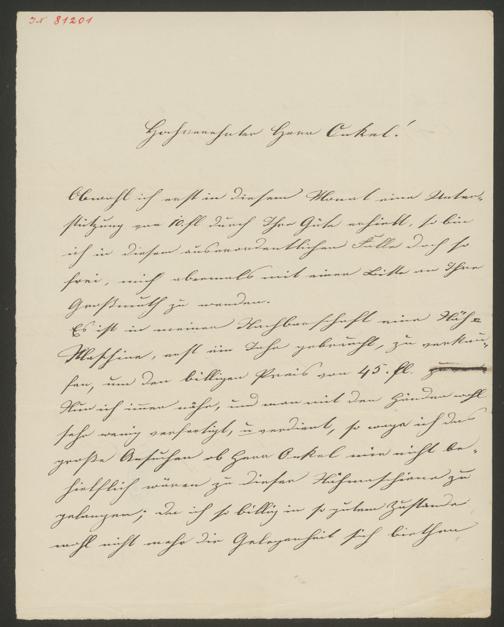 J.N. 81201
Hochverehrter Herr Onkel!
Obwohl ich erst in diesem Monat eine Unter-
stützung von 10 fl durch Ihre Güte erhielt, so bin
ich in diesem ausserordentlichen Falle doch so
frei, mich abermals mit einer Bitte an Ihre
Großmuth zu wenden.
Es ist in meiner Nachbarschaft eine Näh-
Maschine, erst ein Jahr gebraucht, zu verkau-
fen, um den billigen Preis von 45. fl.
Nun ich immer nähe, und man mit den Händen wohl
sehr wenig verfertigt, u verdient, so wage ich das
große Ansuchen ob Herr Onkel mir nicht be-
hielflich wären zu dieser Nähmaschiene zu
gelangen; da ich so billig in so gutem Zustande
wohl nicht mehr die Gelegenheit sich biethen